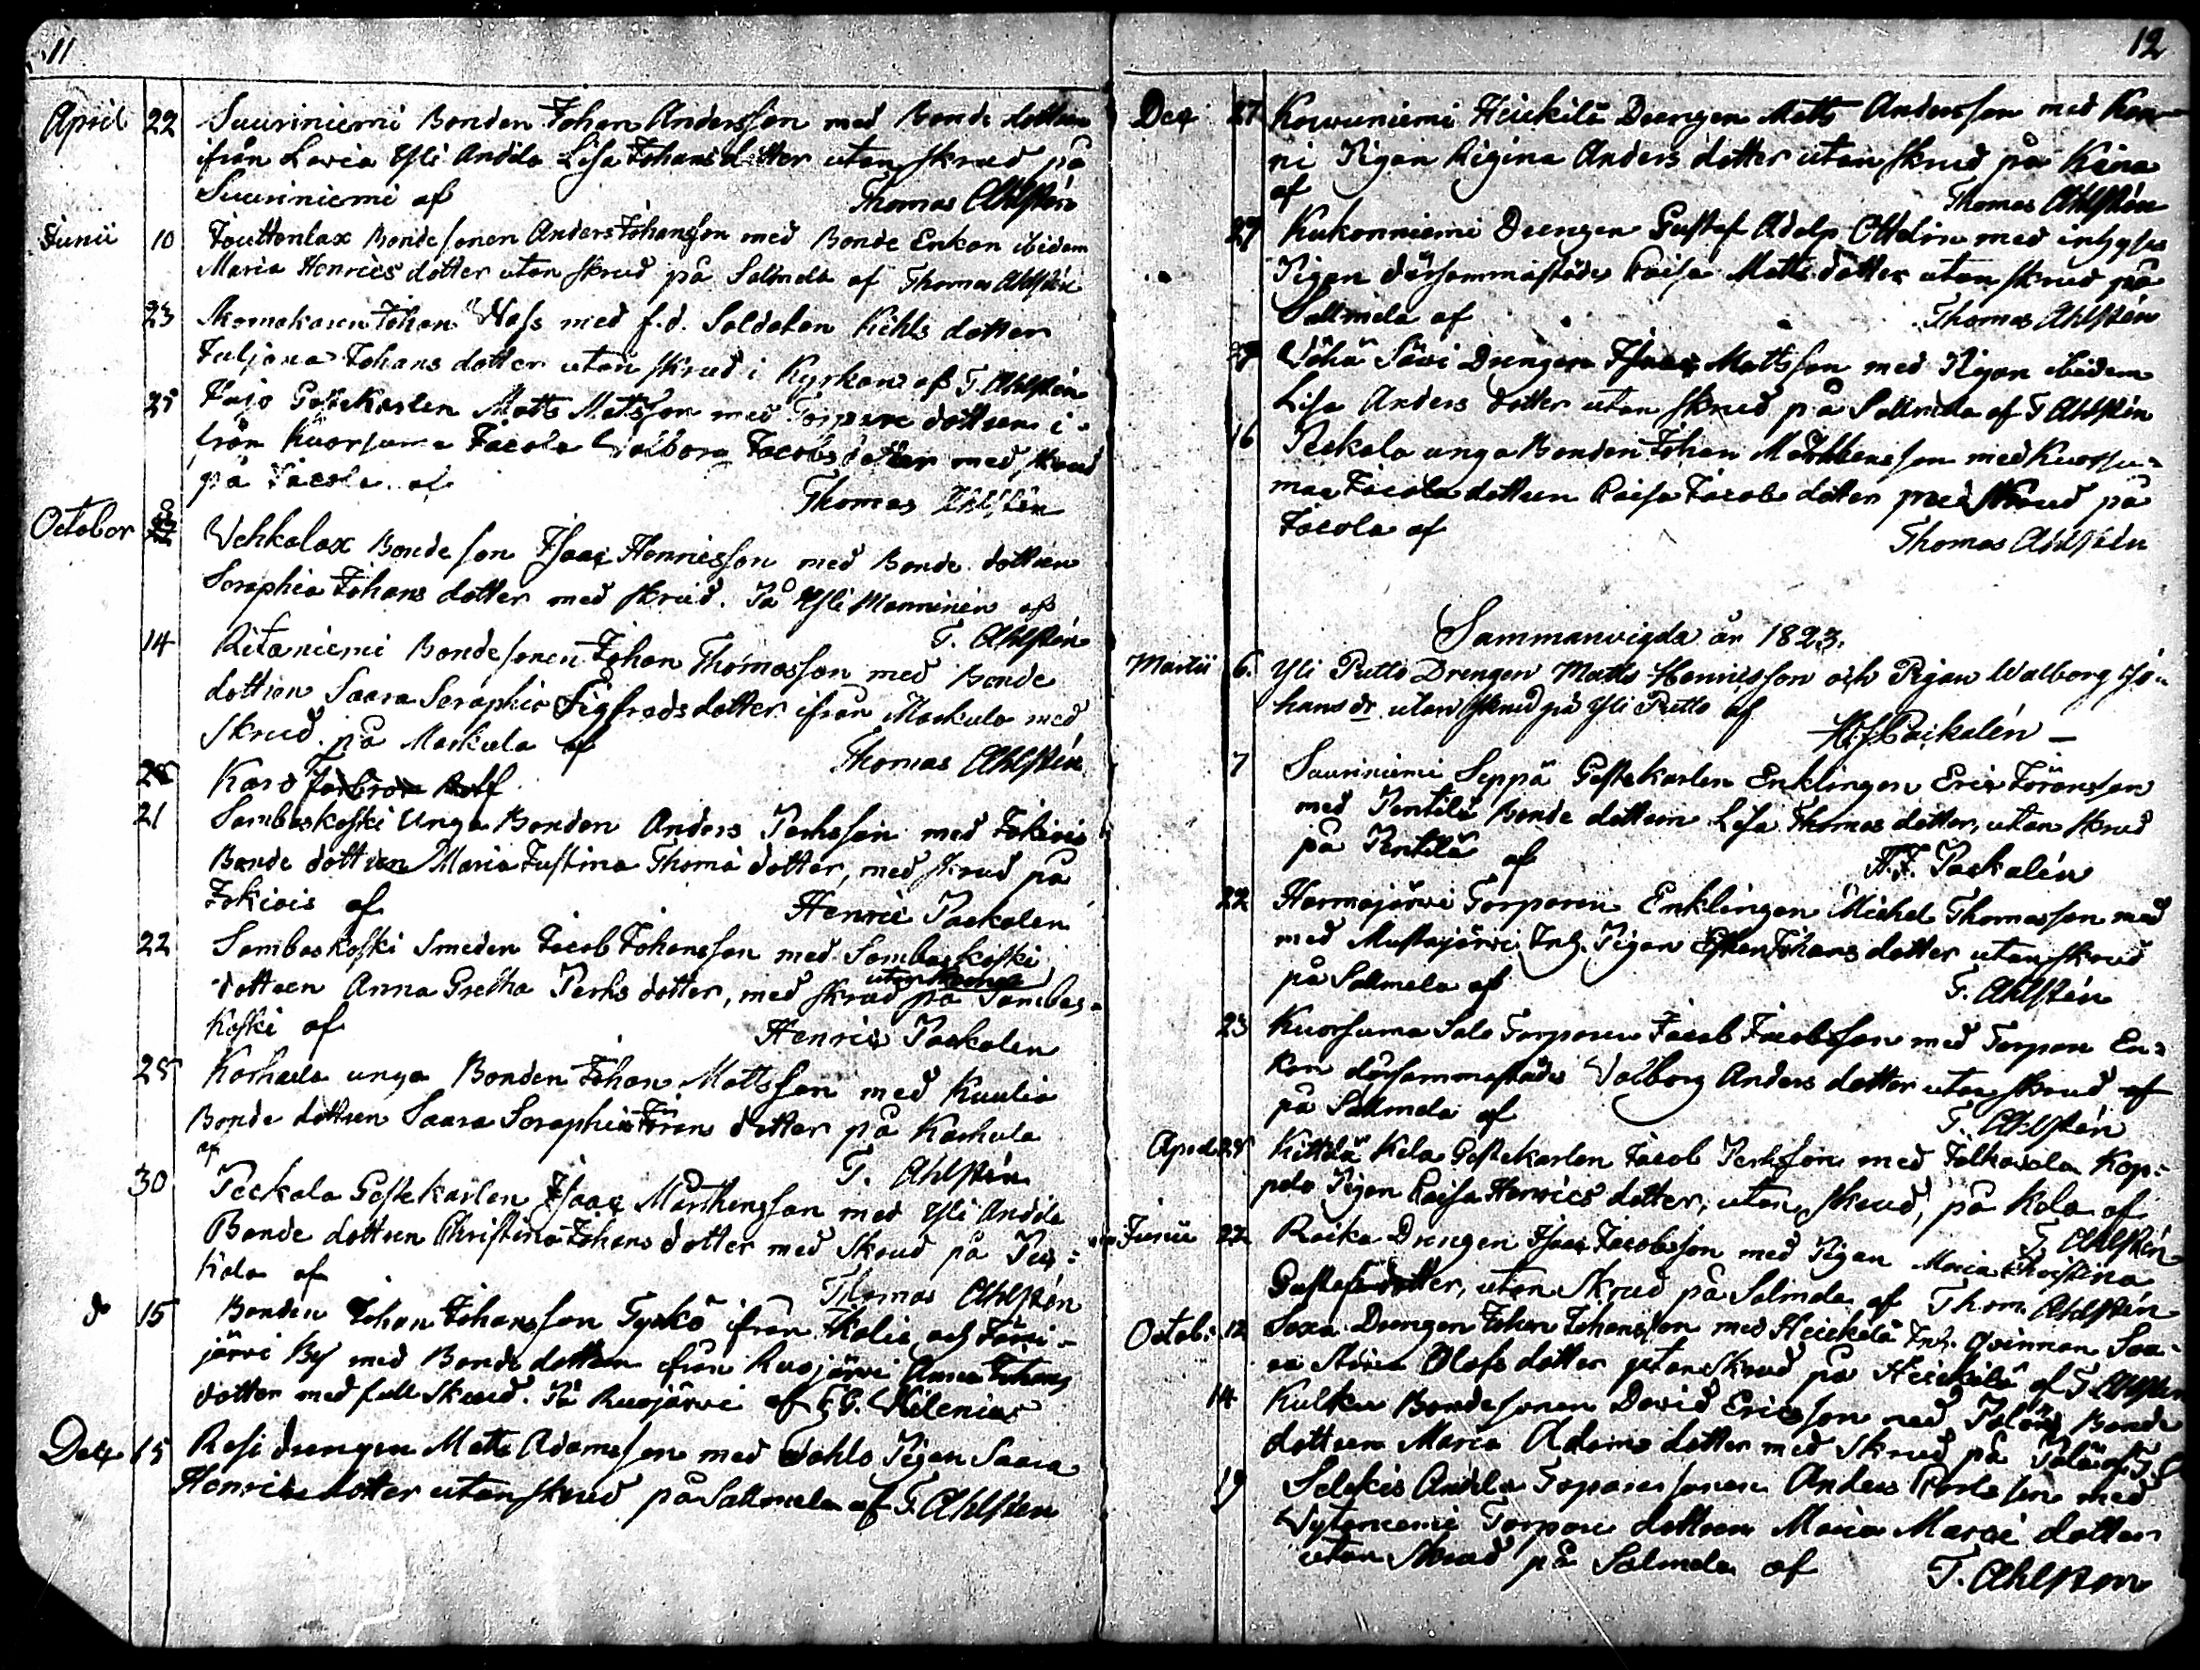 11
April 22 Suuriniemi Bonden Johan Andersson med Bonde dottren
ifrån Lavia Yli Andila Lisa Johans dotter utan skrud på
Suuriniemi af Thomas Ahlstén
Junii 10 Jouttenlax Bondesonen Anders Johansson med Bonde Enkan ibidem
Maria Henrics dotter utan skrud på Salmela af Thomas Ahlstén
23 Skomakaren Johan Wass med f.d. Soldaten Kihls dotter
Juljana Johans dotter utan skrud i Kyrkan af T. Ahlstén
25 Gästekarlen Matts Mattsson med Torpare dottren i-
från Kuorsuma Jacola Walborg Jacobs dotter med skrud
på Jacola af Thomas Ahlstén
October Vehkalax Bonde son Isaac Henricsson med Bonde dottren
Seraphia Johans dotter med skrud. På Yli Manninen af
T. Ahlstén
14 Ritaniemi Bondesonen Johan Thomasson med Bonde
dottren Saara Seraphia Sigfreds dotter ifrån Markula med
skrud på Markula af Thomas Ahlstén
28 Karo
21 Sambaskoski Unga Bonden Anders Pehrsson med Jokiois
Bonde dottren Maria Justina Thoma dotter, med skrud på
Jokiois af Henric Packalen
22 Sambaskoski Smeden Jacob Johansson med Sambaskoski
dottren Anna Gretha Pehrs dotter, med skrud på Sambas-
koski af Henric Packalen
28 Karhula unga Bonden Johan Mattsson med Kuulia
Bonde dottren Saara Seraphia Jöran dotter på Karhula
af T. Ahlstén
30 Peckala Gästekarlen Isaac Mårthensson med Yli Andila
Bonde dottren Christina Johans dotter med Skrud på Pec-
kala af Thomas Ahlstén
d 15 Bonden Johan Johansson Tyrkö ifrån Ikalis och
järvi By med Bonde dottren ifrån Ruojärvi Anna Johans
dotter med full Skrud. På Ruojärvi af G. Kilenius
Dec 15 Rosi drengen Matts Adamsson med Dahlo Pigan Saara
Henrics dotter utan skrud på Sallmela af T. Ahlstén
12
Dec 27 Kouvuniemi Heickilä Drengen Matts Andersson med Kan-
ni Pigan Rigina Anders dotter utan skrud på Kana
af Thomas Ahlstén
27 Kukonniemi Drengen Gustaf Adolp Ottelin med inhyses
Pigan därsammastädes Caisa Matts dotter utan skrud på
Sallmela af Thomas Ahlstén
27 Wähä Sävi Drengen Isaac Mattsson med Pigan ibidem
Lisa Anders dotter utan skrud på Sallmela af T Ahlstén
16 Peckala unga Bonden Johan Mårthensson med Kuorsu-
man Jacola dottren Caisa Jacobs dotter med Skrud på
Jacola af Thomas Ahlstén
Sammanvigda år 1823.
Martii 6. Yli Putto Drengen Matts Henricsson och Pigan Walborg Jo-
hans dr utan skrud på Yli Putto af
Packalén
7 Suuriniemi Seppä Gästekarlen Enklingen Eric Jöransson
med Pentilä Bonde dottren Lisa Thomas dotter, utan skrud
på Pentilä af H. J. Packalén
22 Harmajärvi Torparen Enklingen Michel Thomasson med
med Mustajärvi Inh. Pigan Ester Johans dotter utan skrud
på Salmela af T. Ahlstén
23 Kuorsuma Salo Torparen Jacob Jacobsson med Torpare En-
kan därsammastädes Valborg Anders dotter utan skrud af
på Sallmela af T. Ahlstén
April 28 Kittilä Kela Gästekarlen Jacob Pehrsson med Jalkavala Kop-
pelo Pigan Caisa Henrics dotter, utan skrud, på Kela af
T. Ahlstén
Junii 22 Raika Drengen Isaac Jacobsson med Pigan Maria Christina
Gustafs dotter, utan Skrud på Salmela af Thom. Ahlstén
Octob: 12 Saxa Drengen Johan Johansson med Heickilä Inh. Qvinnan Saa-
ra Stina Olofs dotter utan skrud på Heickilä af T. Ahlstén
14 Kulku Bondesonen David Ericsson med Palän Bonde
dottren Maria Adams dotter med skrud på Palän af T.
19 Selkis Andila Torparesonen Anders Carlsson med
Torpare dottren Maria Marci dotter
utan skrud på Salmela af T. Ahlstén